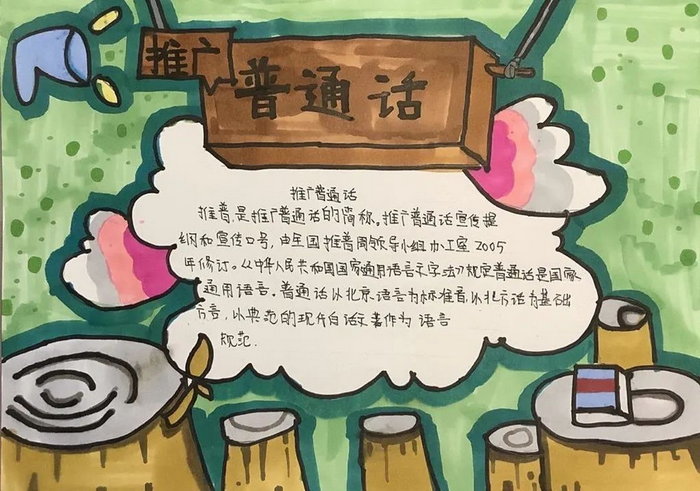 推广
普通话
推广普通话
推普,是推广普通话的简称。推广普通话宣传提
纲和宣传口号,由全国推普周领导小组办工室2005
年修订。《中华人民共和国国家通用语言文字法》规定普通话是国家
通用语言。普通话以北京语言为标准音,以北方话为基础
方言,以典范的现代白话文著作为 语言
规范.